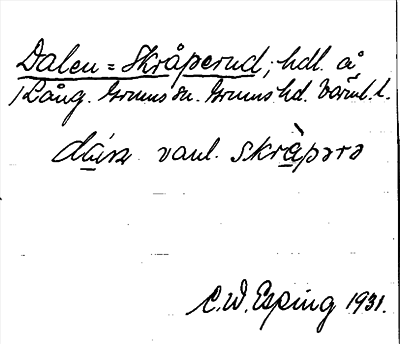 Dalen = Skråperud, hdl. å
/Lång. Grums sn. Grums hd. Värml. l.
vanl. skràpərə
C.W. Esping 1931.